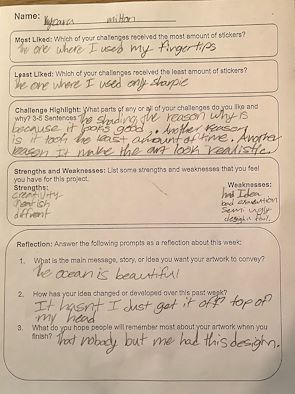 Name: Kyeara milton
Most Liked: Which of your challenges received the most amount of stickers?
The one where I used my fingertips
Least Liked: Which of your challenges received the least amount of stickers?
The one where I used only sharpie
Challenge Highlight: What parts of any or all of your challenges do you like and
why? 3-5 Sentences The shading, the reason why is
because it looks good. Another reason
is it took the least amount of time. Another
reason It make the art look realistic.
Strengths and Weaknesses: List some strengths and weaknesses that you feel
you have for this project.
Strengths:
creativity
different
Weaknesses:
bad Idea
bad execution
semi ugly
design fail.
Reflection: Answer the following prompts as a reflection about this week:
1. What is the main message, story, or idea you want your artwork to convey?
The ocean is beautiful
2. How has your idea changed or developed over this past week?
It hasn't I just got it off top of
my head
3. What do you hope people will remember most about your artwork when you
finish? That nobody but me had this desighn.